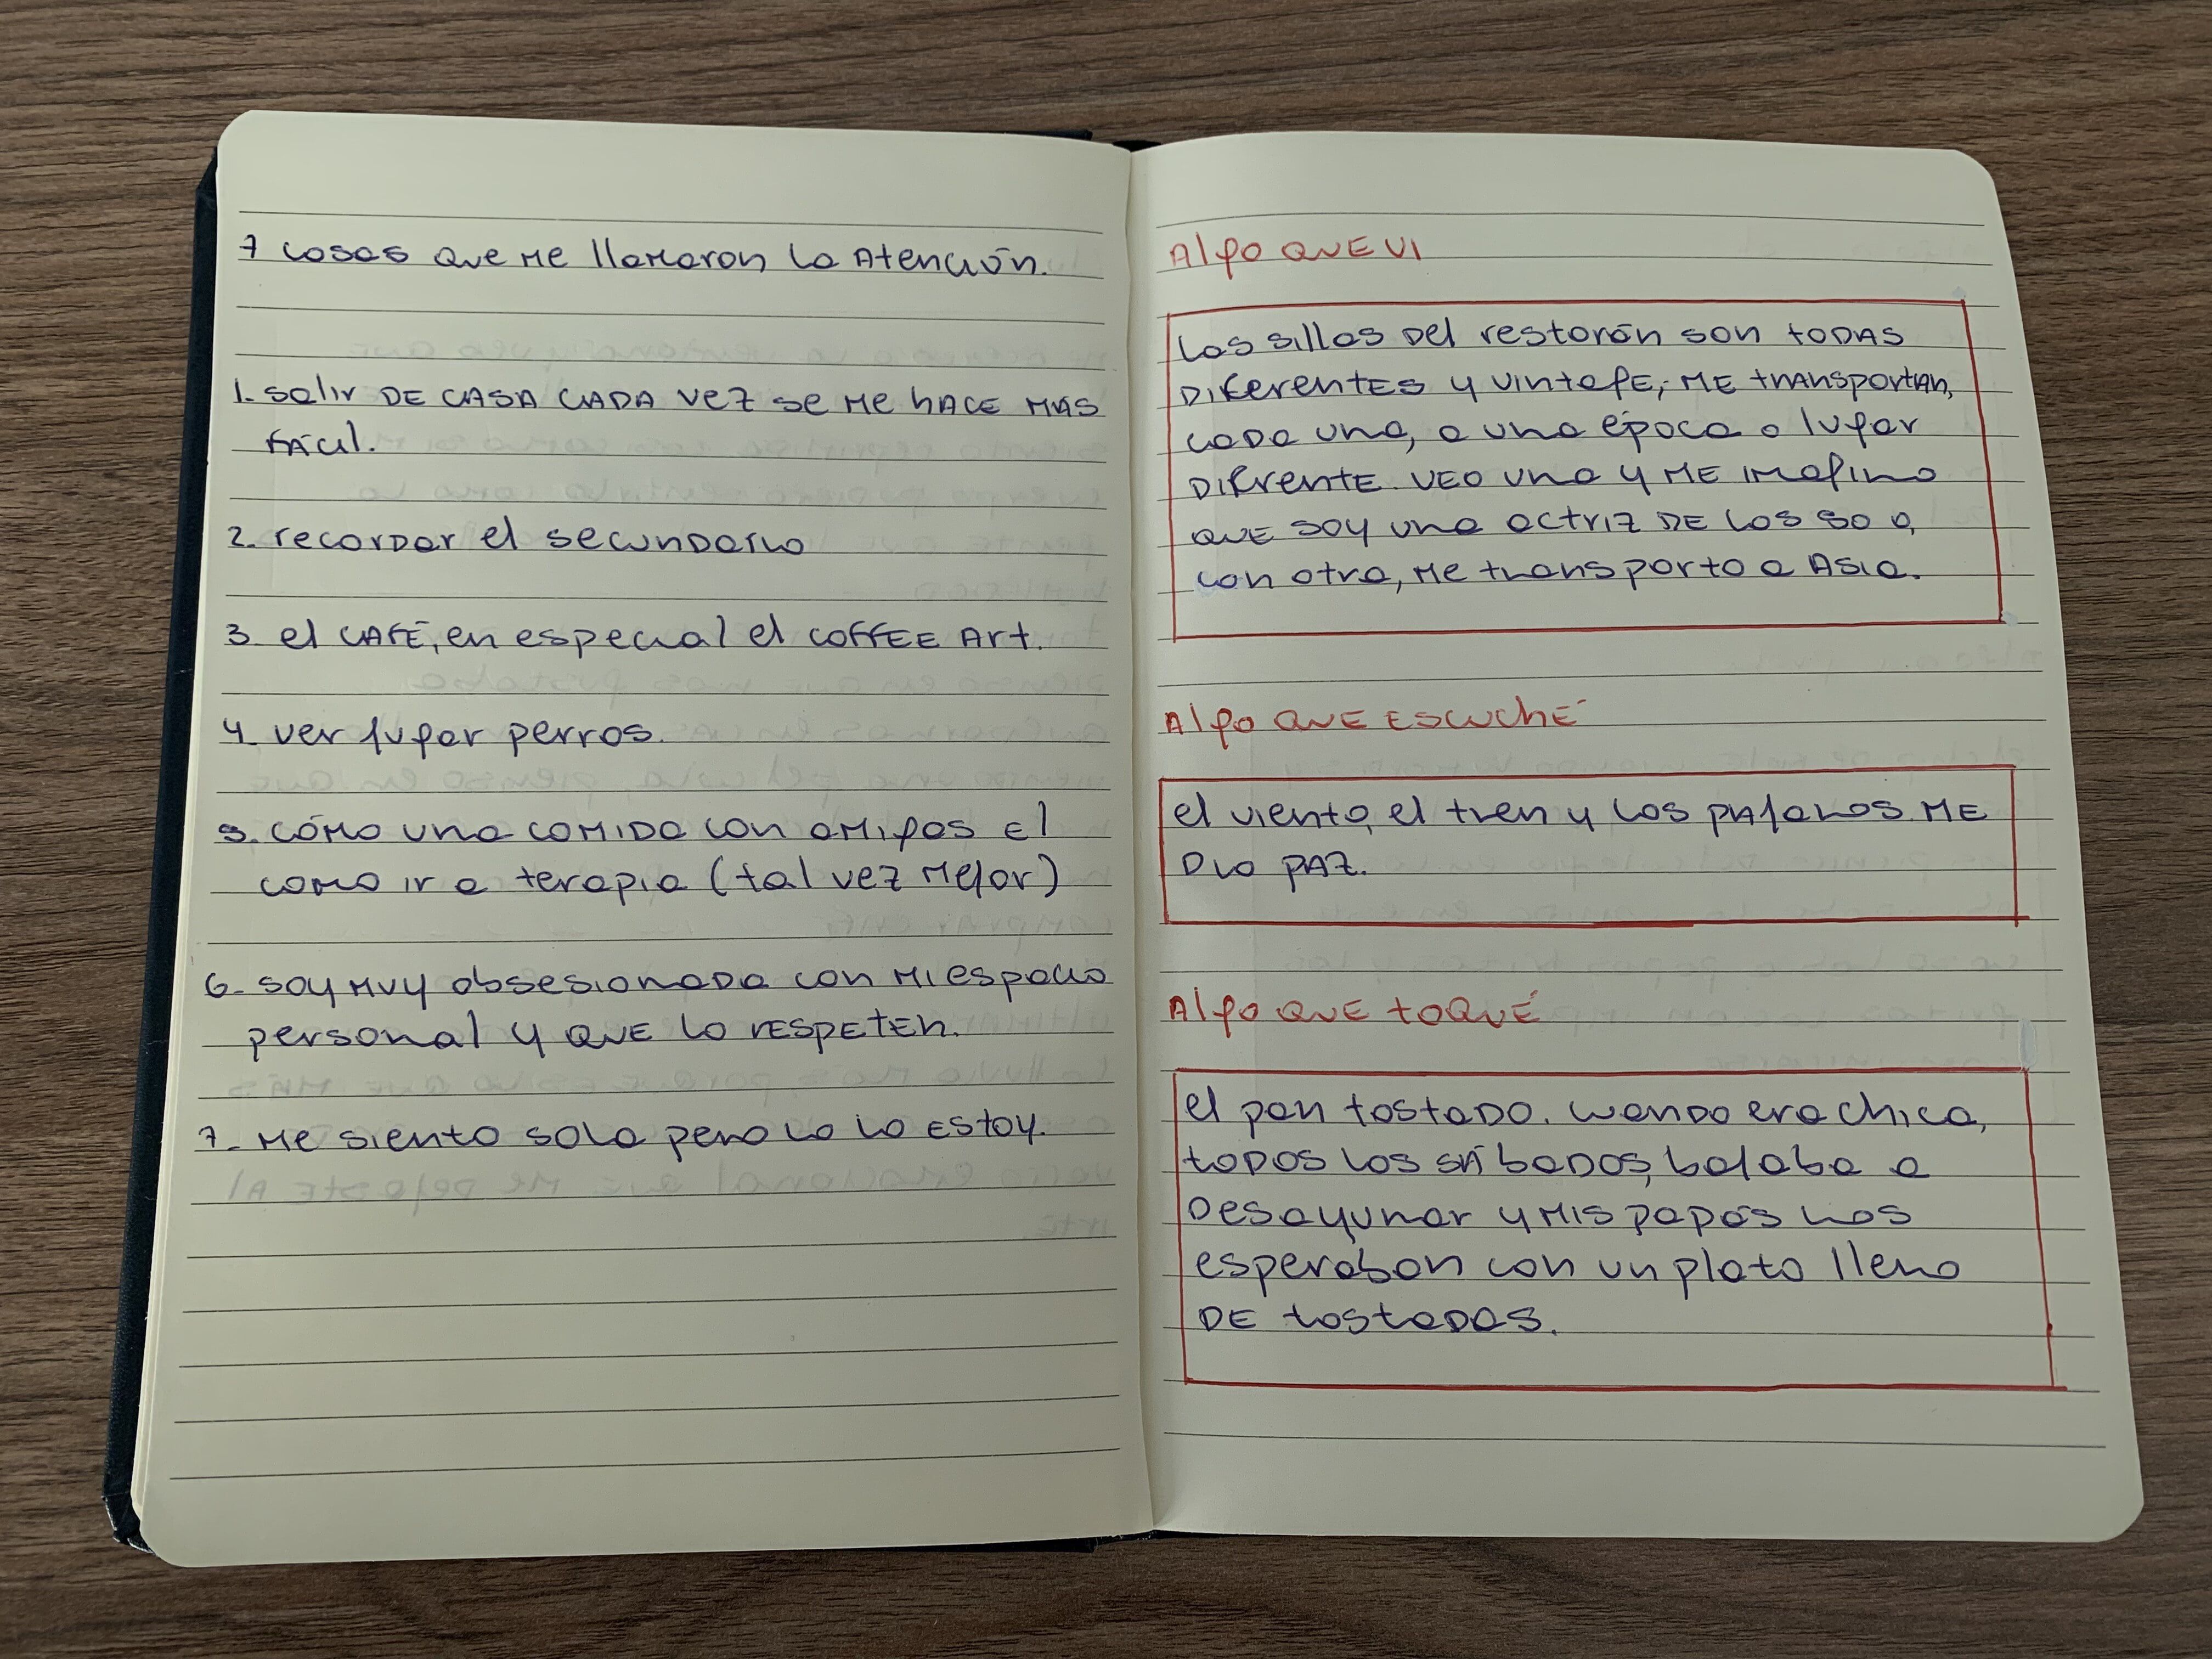 7 cosas que me llamaron la atención.
1. salir de casa cada vez se me hace más
fácil.
2. recordar el secundario
3. el café, en especial el coffee art.
4. ver jugar perros.
5. cómo una comida con amigos el
como ir a terapia (tal vez mejor)
6. soy muy obsesionada con mi espacio
personal y que lo respeten.
7. Me siento sola pero lo lo estoy.
Algo que vi
Las sillas del restorán son todas
diferentes y vintage, me transportan,
cada una, a una época o lugar
difrente. Veo una y me imagino
que soy una actriz de los 50 o,
con otra, me transporto a Asia.
Algo que escuché
el viento, el tren y los pájaros me
dio paz.
Algo que toqué
el pan tostado. Cuando era chica,
todos los sábados, bajaba a
desayunar y mis papás nos
esperaban con un plato lleno
de tostadas.